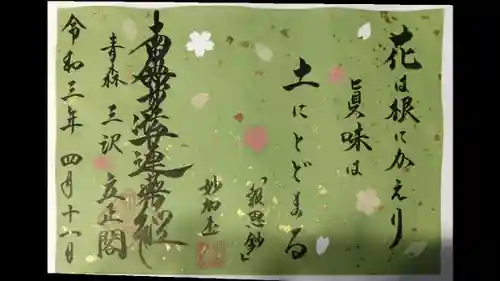 花は根にかえり
眞味は
土にとどまる
「報恩鈔」
妙加玉
南無妙法蓮華経
青森 三沢 立正閣
令和三年 四月十八日